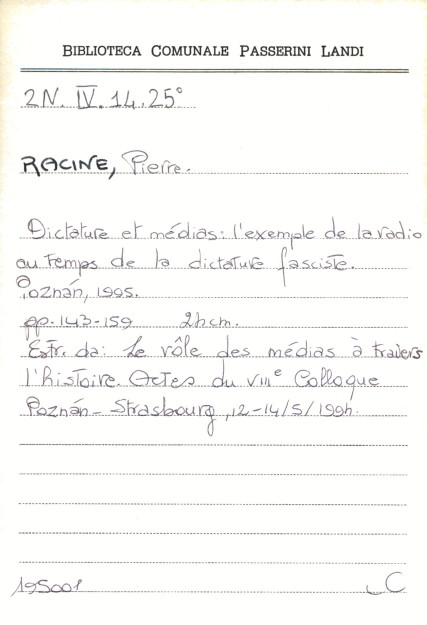 BIBLIOTECA COMUNALE PASSERINI LANDI
2N. IV. 14. 25°
RACINE, Pierre.
Dictature et médias: l'exemple de la radio
au temps de la dictature fasciste.
Poznán, 1995.
pp. 143-159 24cm.
Estr. da: Le rôle des médias à travers
l'histoire. Actes du VIIIe Colloque
Poznán - Strasbourg, 12-14/5/1994.
195001